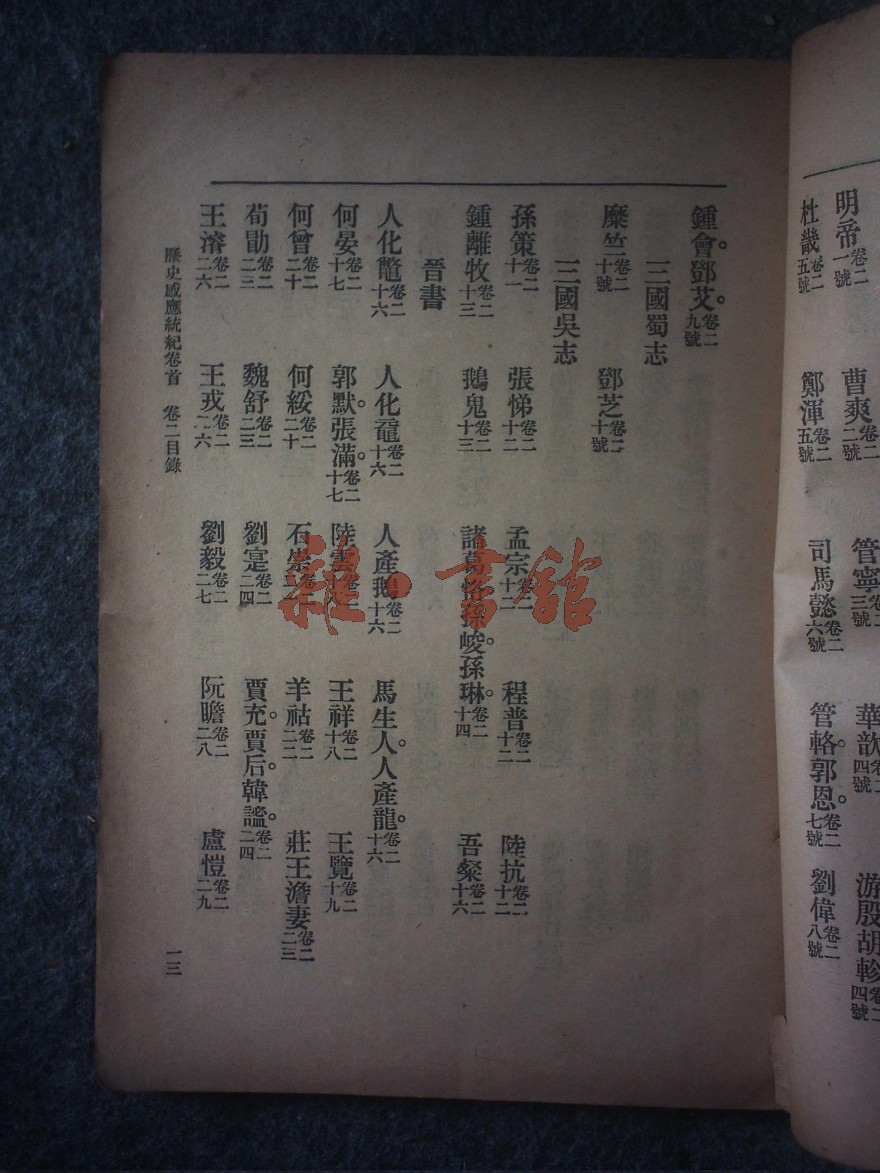 明帝卷二一號
曹爽卷二二號
管寧卷二三號
華歆卷二四號
游殷胡軫卷二四號
杜畿卷二五號
鄭渾卷二五號
司馬懿卷二六號
管輅。郭恩。卷二七號
劉偉卷二八號
鍾會。鄧艾。卷二九號
三國蜀志
糜竺卷二十號
鄧芝卷二十號
三國吳志
孫策卷二十一
張悌卷二十二
孟宗卷二十二
程普卷二十二
陸抗卷二十二
鍾離牧卷二十三
鵝鬼卷二十三
諸葛恪孫峻。孫琳。卷二十四
吾粲卷二十六
晉書
人化鼈卷二十六
人化黿卷二十六
人產鵝卷二十六
馬生人。人產龍。卷二十六
何晏卷二十七
郭默。張滿。卷二十七
陸雲
王祥卷二十八
王覽卷二十九
何曾卷二二十
何綏卷二二十
石崇
羊祜卷二二二
莊王澹妻卷二二三
荀勖卷二二三
魏舒卷二二三
劉寔卷二二四
賈充。賈后。韓謐。卷二二四
王濬卷二二六
王戎卷二二六
劉毅卷二二七
阮瞻卷二二八
盧愷卷二二九
歷史感應統紀卷首 卷二目錄
一三
雜·書館